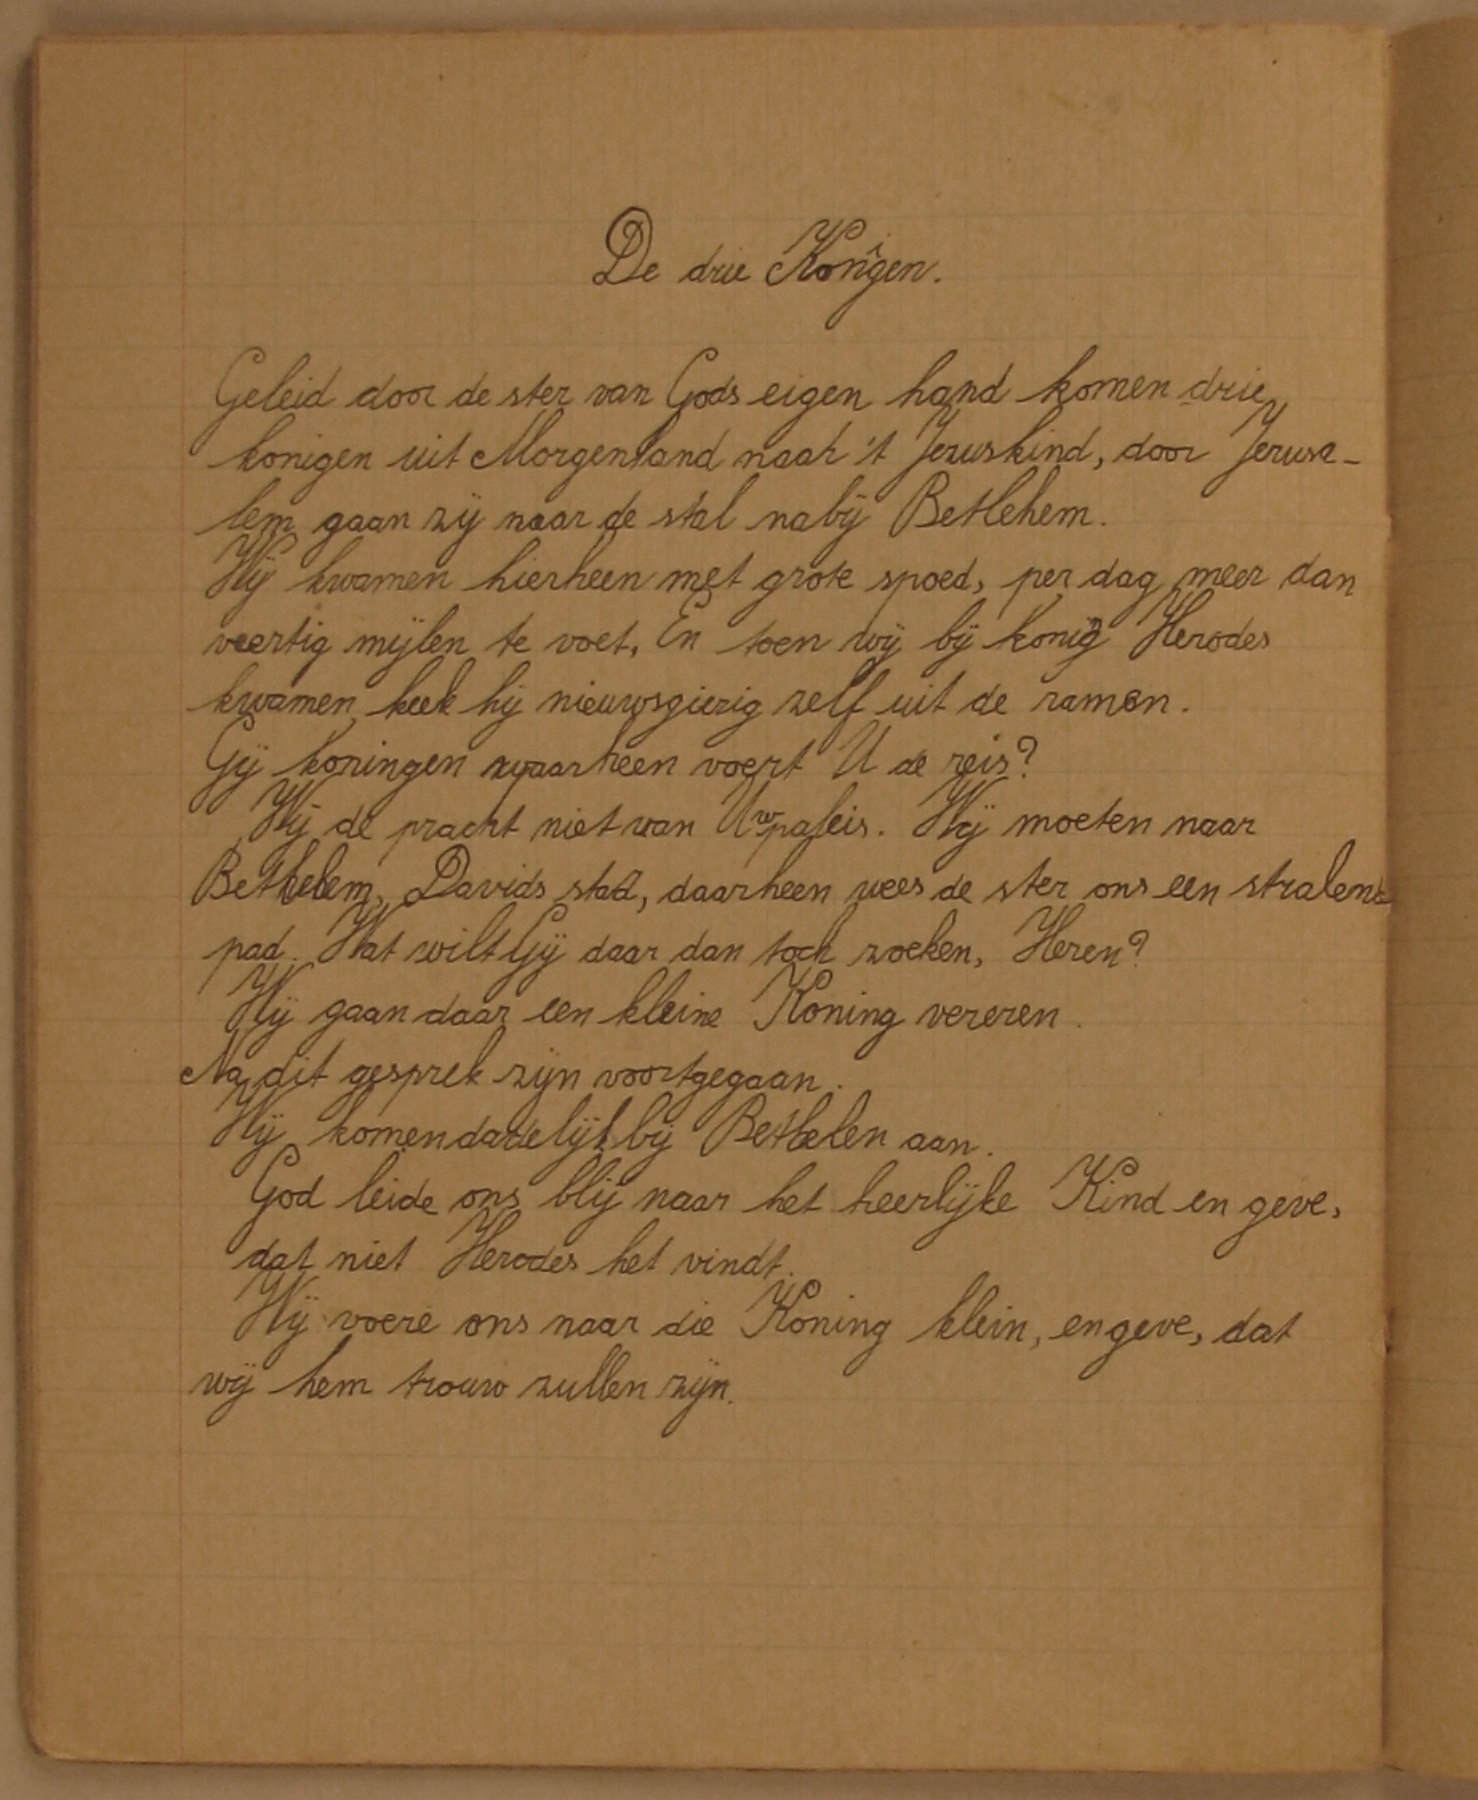 De drie Konigen.
Geleid door de ster van Gods eigen hand komen drie
konigen uit Morgenland naar 't Jezuskind, door Jerusa-
lem gaan zij naar de stal nabij Bethlehem.
Wij kwamen hierheen met grote spoed, per dag meer dan
veertig mijlen te voet, En toen wij bij konig Herodes
kwamen, keek hij nieuwsgierig zelf uit de ramen.
Gij koningen waarheen voert U de reis?
Wij de pracht niet van Uw paleis. Wij moeten naar
Bethlehem, Davids stad, daarheen wees de ster ons een stralend
pad. Wat wilt Gij daar dan toch zoeken, Heren?
Wij gaan daar een kleine Koning vereren.
Na dit gesprek zijn voortgegaan.
Wij komen dadelijk bij Bethelen aan.
God leide ons blij naar het heerlijke Kind en geve,
dat niet Herodes het vindt.
Hij voere ons naar die Koning klein, en geve, dat
wij hem trouw zullen zijn.